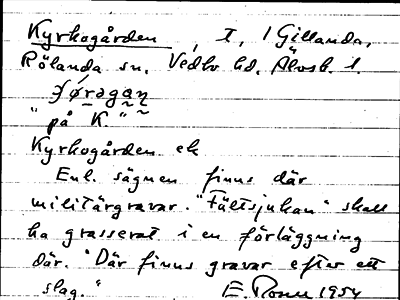 Kyrkogården, I, 1 Gillanda,
Rölanda sn. Vedbo hd. Älvsb. l.
"på K."
Kyrkogården ek
Enl. sägnen finns där
militärgravar. "Fältsjukan" skall
ha grasserat i en förläggning
där. "Där finns gravar efter ett
slag." E. 1954